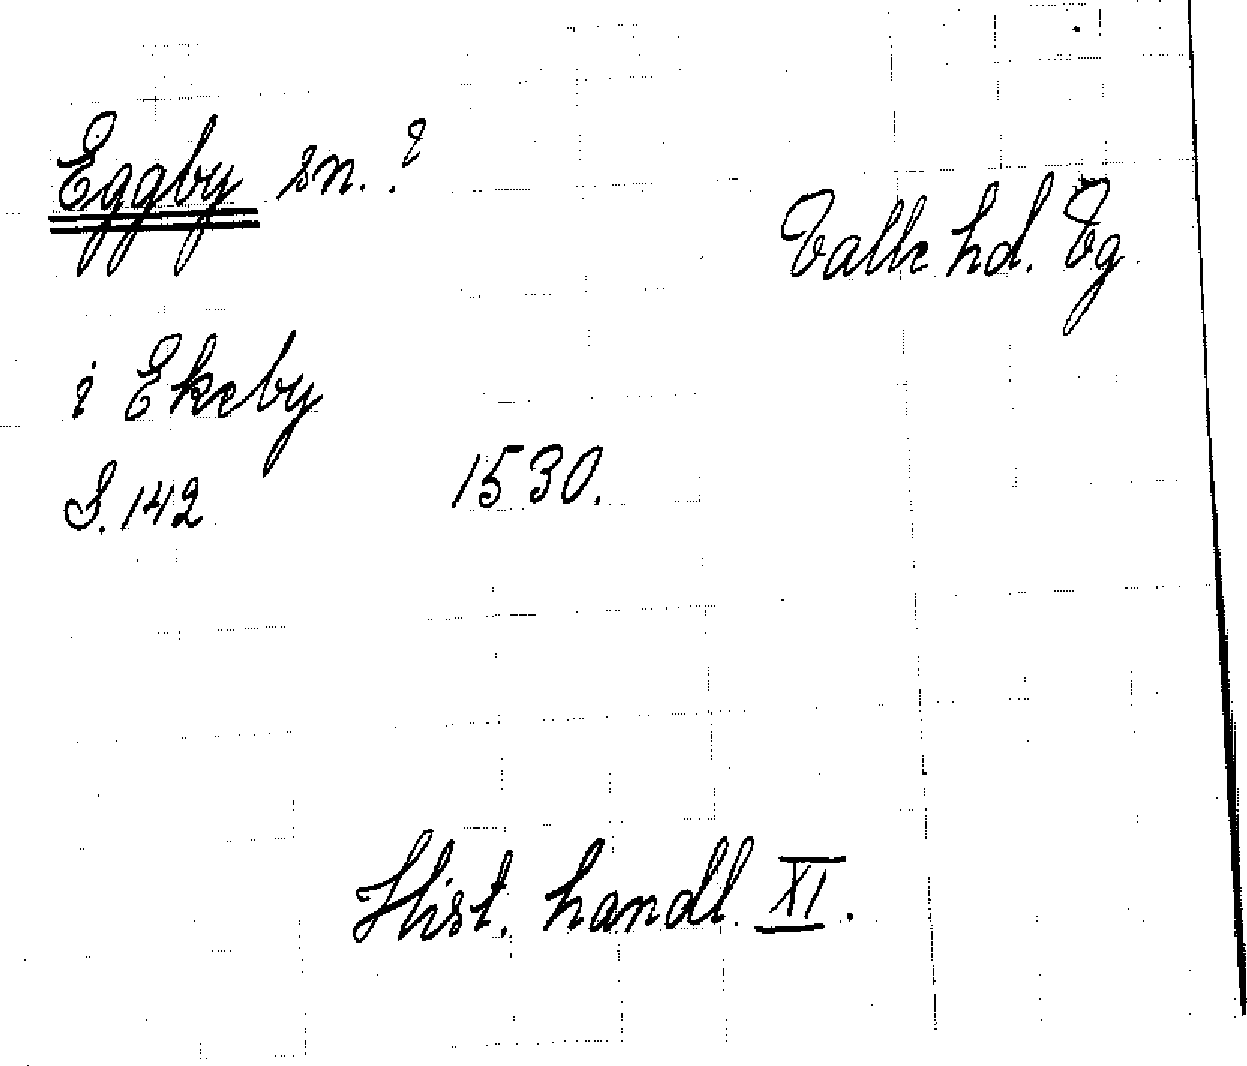 Eggby sn. ?
Valle hd. Vg.
i Ekeby
S. 142 1530.
Hist. handl. XI.